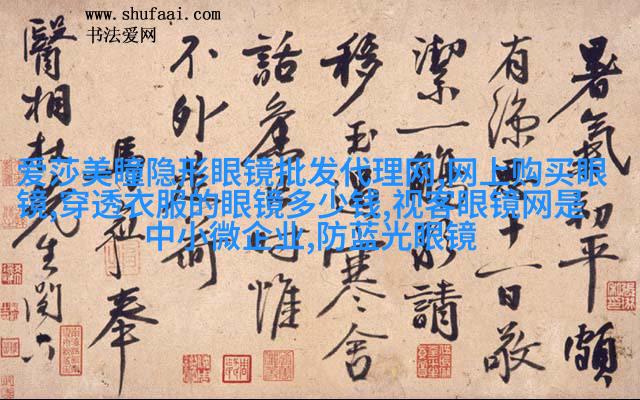 www.shufaai.com
书法爱网
爱莎美瞳隐形眼镜批发代理网,网上购买眼
镜,穿透衣服的眼镜多少钱,视客眼镜网是
中小微企业,防蓝光眼镜
暑氣初平頗
有涼思十一日敬
潔一觴請
移玉寒舍
話舊惟
不外荷
奉
醫相杜先生閣下